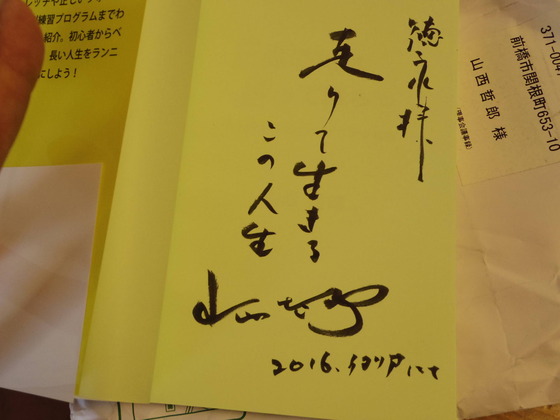 レッチや正しいフォー
練習プログラムまでわ
紹介。初心者からベ
長い人生をランニ
にしよう！
徳永様
走りて生きる
この人生
山西哲郎
2016.
にて
371-004
前橋市関根町653-10
山西哲郎 様
(理事会議事録)